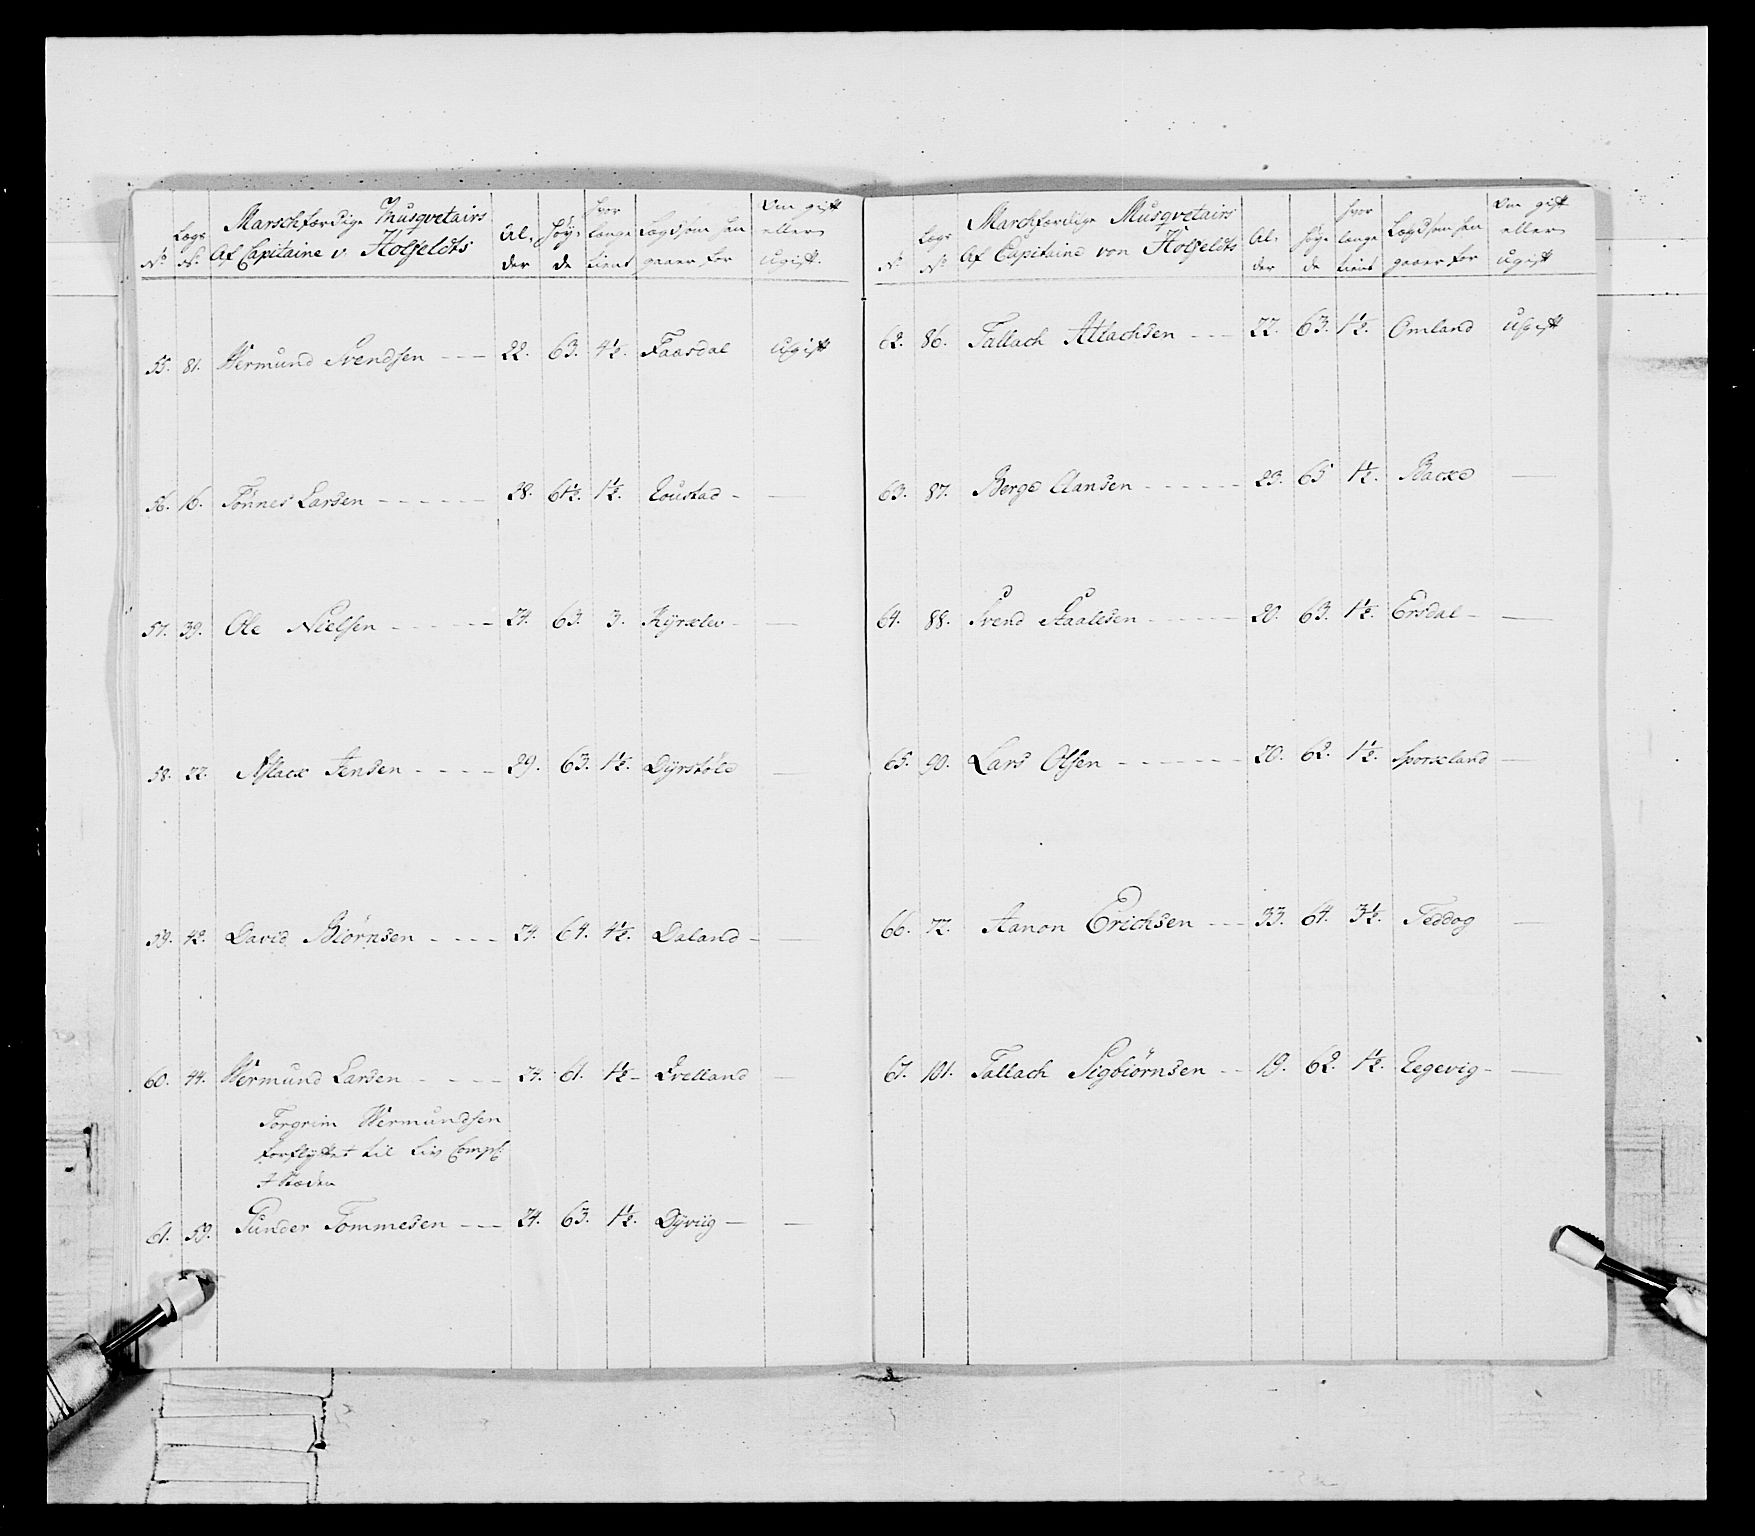 N. Lægs N. Marschfærdige Musqvetairs Af Capitaine v. Holfeldts Al- der Høy- de hvor lange tient Lægd som han gaaer for Om gift eller ugift.
55. 81. Wermund Svendsen - - - 22. 63. 4½. Faasdal Ugift
56. 16. Tønnes Larsen - - - - - - 28. 61½. 1½. Roustad - —
57. 39. Ole Nielsen - - - - - - 24. 63. 3. - —
58. 22. Aslack Jensen - - - - - 29. 63. 1½. Dyrstøle —
59. 42. David Biørnsen - - - - 24. 64. 4½. Daland - —
60. 44. Wermund Larsen - - - - - 24. 61. 1½ - Qvelland —
Torgrim Wermundsen
forflyttet til Liv Comp:
I Stæden
61. 59. Gunder Tommesen - - - 24. 63. 1½. Dyviig — —
N. Lægs N. Marchfærdige Musqvetairs Af Capitaine von Holfeldts Al- der Høy- de hvor lange tient Lægd som han gaaer for Om gift eller ugift
62. 86. Tallach Attachsen - - - 22. 63. 1½. Omland Ugift
63. 87. Berge Clansen - - - - - - 23. 65 1½. Backe —
64. 88. Svend Staalesen - - - - - - 20. 63. 1½. Ersdal - —
65. 90. Lars Olsen - - - - - - - 20. 62. 1½. Sporckland —
66. 72. Aanon Erichsen - - - 33. 64. 3½. Feddog —
67. 101. Tallach Sigbiørnsen - - 19. 62. 1½. Regevig - —